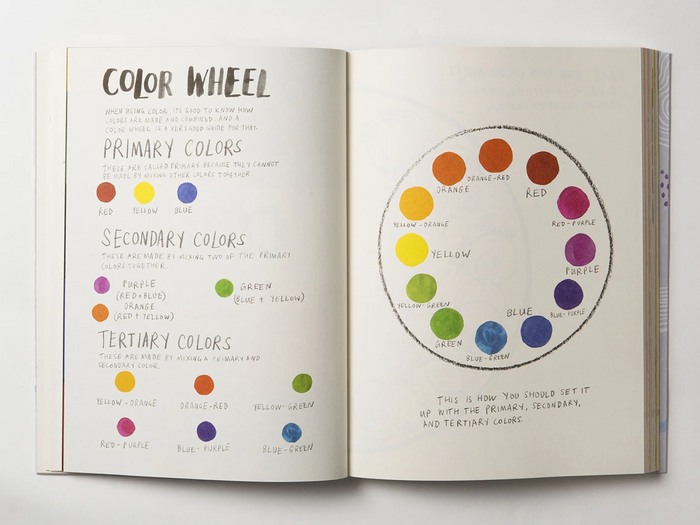 COLOR WHEEL
WHEN USING COLOR, IT'S GOOD TO KNOW HOW
COLORS ARE MADE AND COMBINED, AND A
COLOR WHEEL IS A VERY GOOD GUIDE FOR THAT.
PRIMARY COLORS
THESE ARE CALLED PRIMARY BECAUSE THEY CANNOT
BE MADE BY MIXING OTHER COLORS TOGETHER.
RED YELLOW BLUE
SECONDARY COLORS
THESE ARE MADE BY MIXING TWO OF THE PRIMARY
COLORS TOGETHER.
PURPLE
(RED+BLUE)
ORANGE
(RED + YELLOW)
GREEN
(BLUE + YELLOW)
TERTIARY COLORS
THESE ARE MADE BY MIXING A PRIMARY AND
SECONDARY COLOR.
YELLOW-ORANGE ORANGE-RED YELLOW-GREEN
RED-PURPLE BLUE-PURPLE BLUE-GREEN
ORANGE-RED
ORANGE
RED
YELLOW-ORANGE
RED-PURPLE
YELLOW
PURPLE
YELLOW-GREEN
BLUE-PURPLE
BLUE
GREEN
BLUE-GREEN
THIS IS HOW YOU SHOULD SET IT
UP WITH THE PRIMARY, SECONDARY,
AND TERTIARY COLORS.